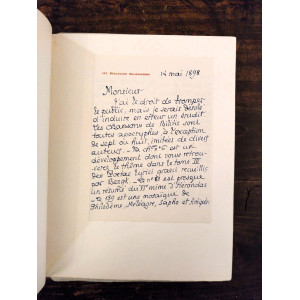 14 mai 1898
Monsieur
J'ai le droit de tromper
le public, mais je serais désolé
d'induire en erreur un érudit. Les
Chansons de Bilitis sont
toutes apocryphes, à l'exception
de sept ou huit, imitées de divers
auteurs. La est un
développement dont vous retrou-
verez le thème dans le tome III
des Poetae Lyrici graeci recueillis
par Bergk. La n° est presque
un résumé du mime d'Hérondas
La est une mosaïque de
Philodème, Méléagre, Sapho et